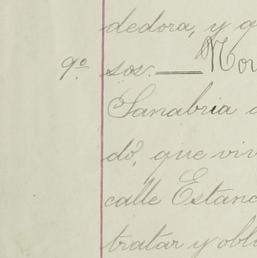 dedora, y q
9º sos.— Nor
Sanabria
dó, que viv
calle Estanc
tratar y obli